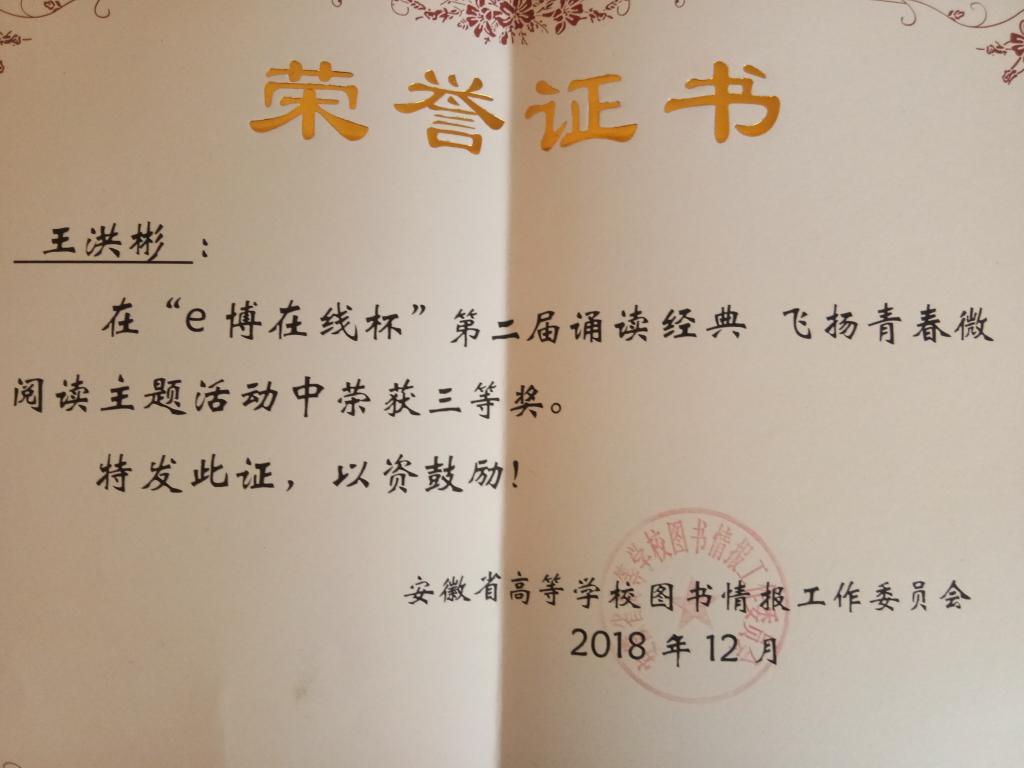 荣誉证书
王洪彬：
在“e博在线杯”第二届诵读经典 飞扬青春微
阅读主题活动中荣获三等奖。
特发此证，以资鼓励！
安徽省高等学校图书情报工作委员会
2018年12月
安徽省高等学校图书情报工作委员会